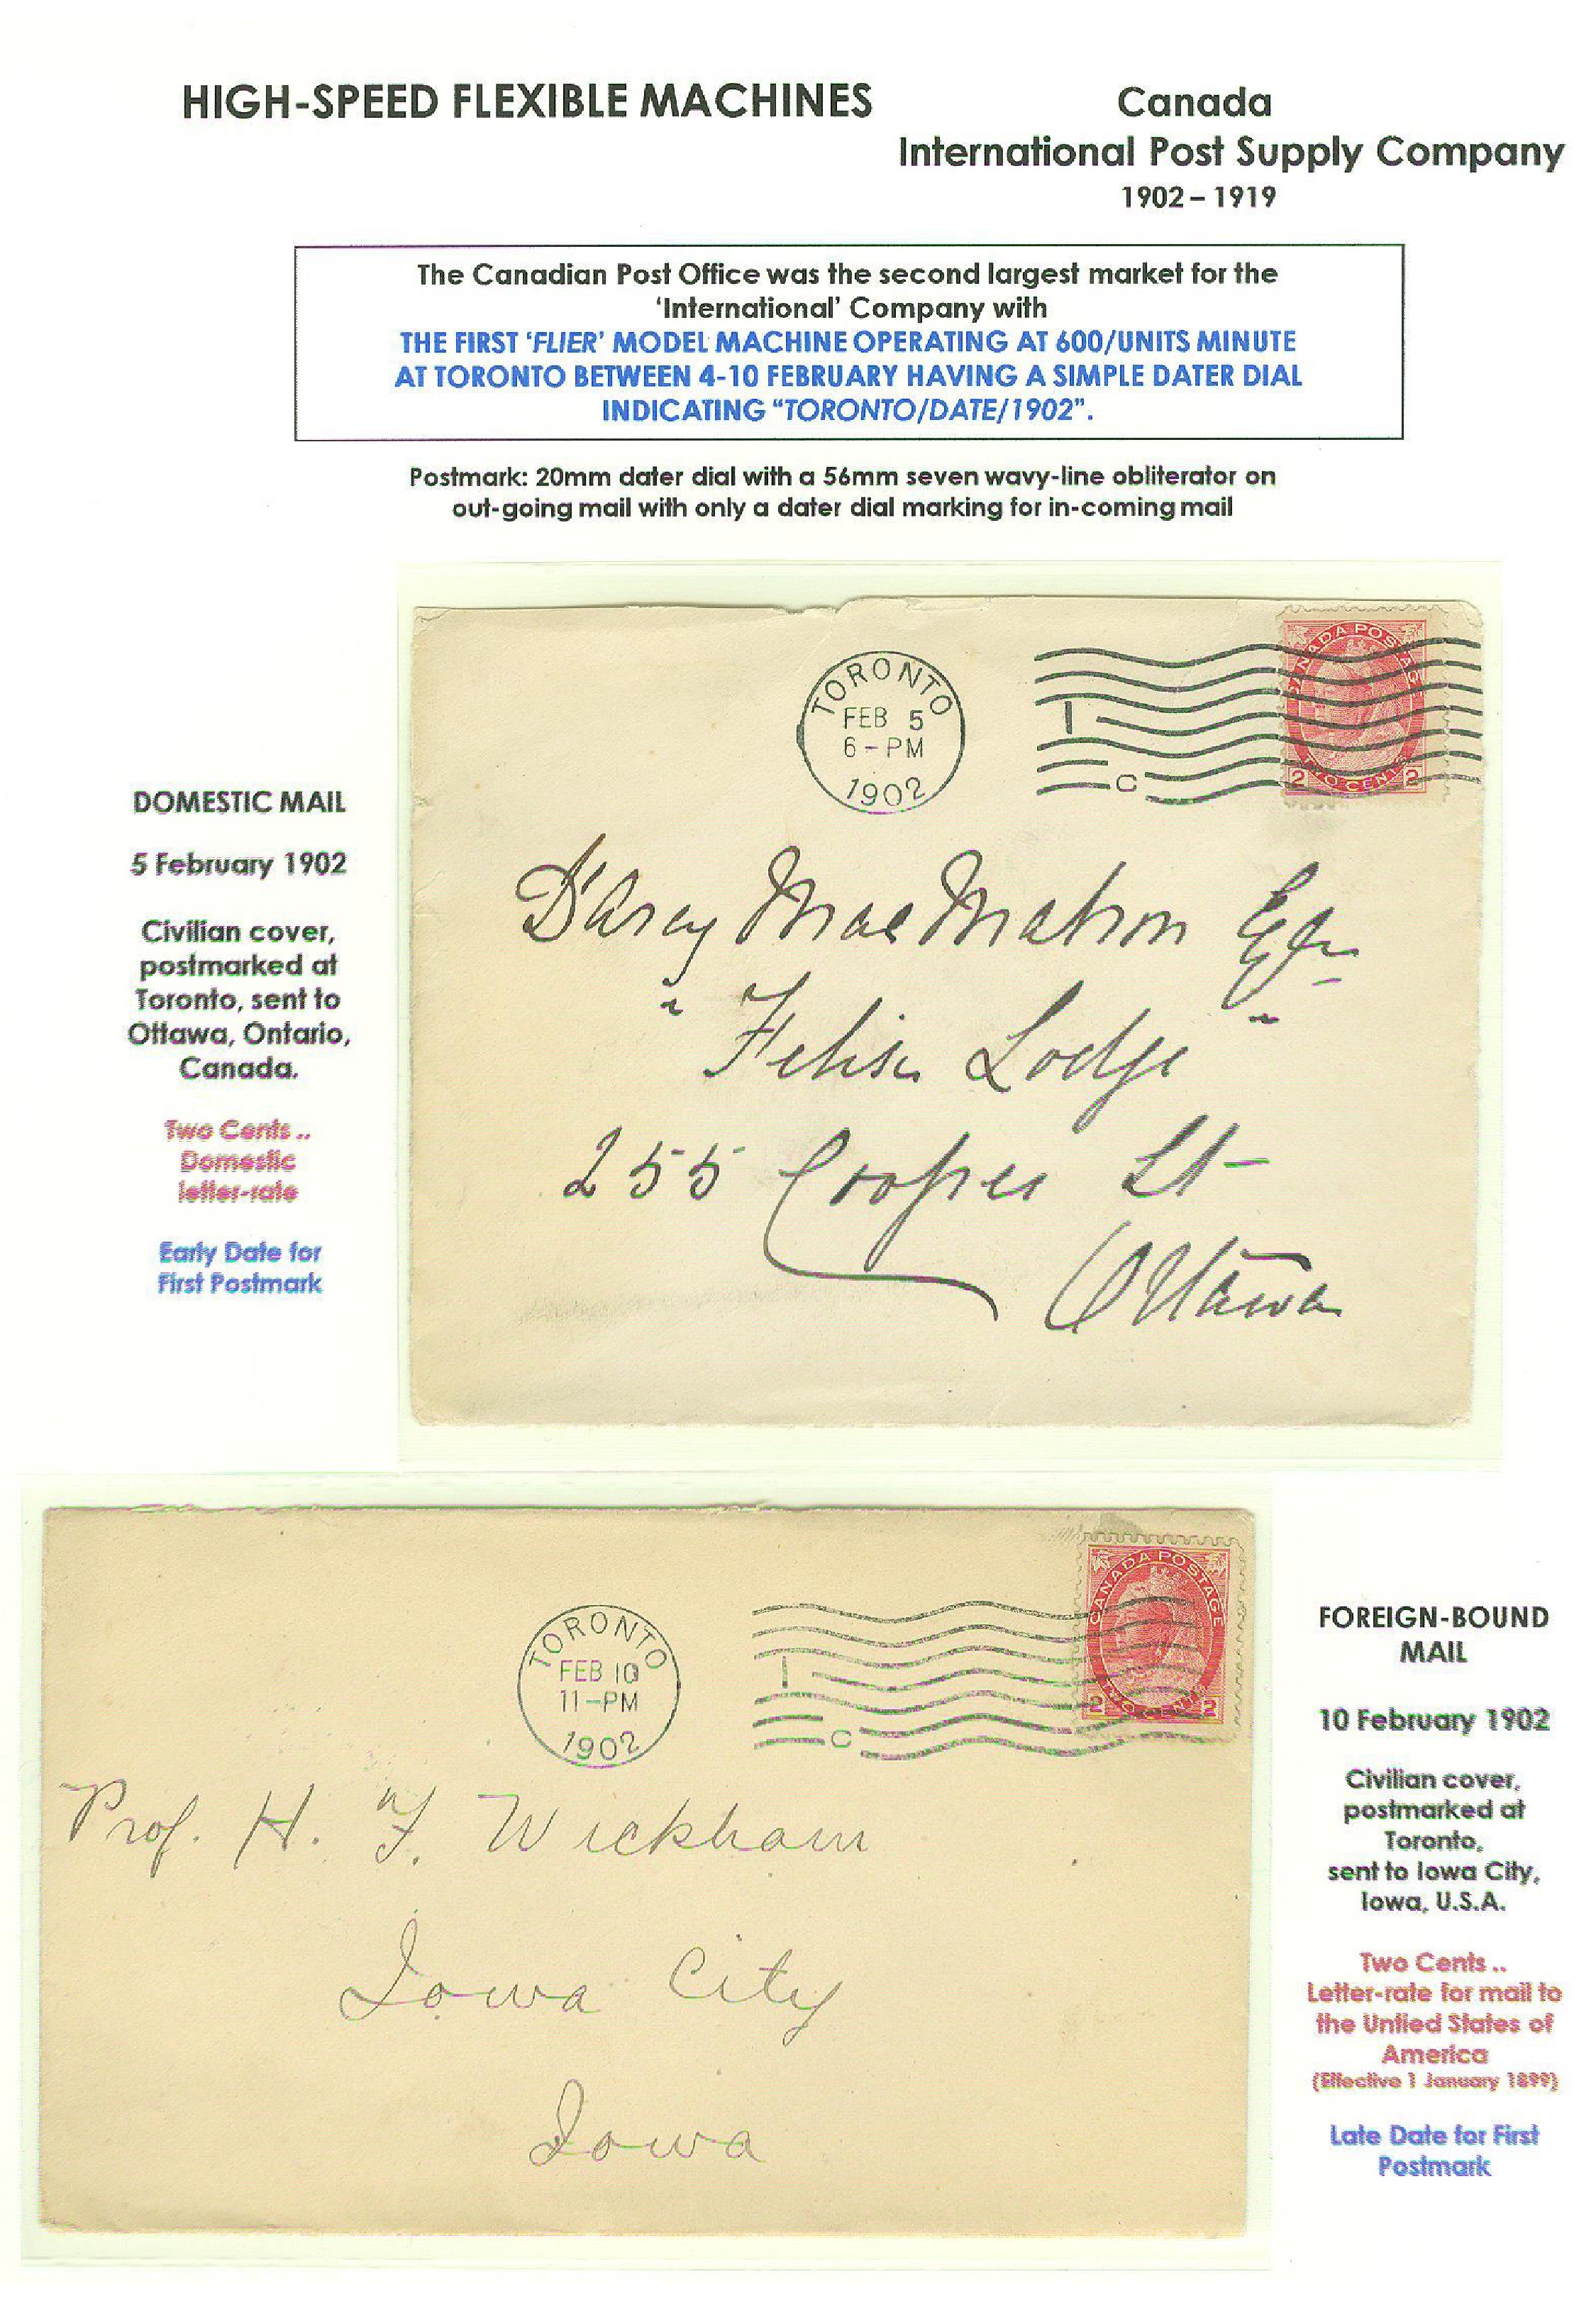 HIGH-SPEED FLEXIBLE MACHINES
Canada
International Post Supply Company
1902 – 1919
The Canadian Post Office was the second largest market for the
‘International’ Company with
THE FIRST ‘FLIER’ MODEL MACHINE OPERATING AT 600/UNITS MINUTE
AT TORONTO BETWEEN 4-10 FEBRUARY HAVING A SIMPLE DATER DIAL
INDICATING “TORONTO/DATE/1902”.
Postmark: 20mm dater dial with a 56mm seven wavy-line obliterator on
out-going mail with only a dater dial marking for in-coming mail
DOMESTIC MAIL
5 February 1902
Civilian cover,
postmarked at
Toronto, sent to
Ottawa, Ontario,
Canada.
Two Cents ..
Domestic
letter-rate
Early Date for
First Postmark
TORONTO
FEB 5
6-PM
1902
I
C
CANADA POSTAGE
2 TWO CENTS 2
D'Arcy Mac Mahon Esq
" Lodge "
255 Cooper St
Ottawa
TORONTO
FEB 10
11-PM
1902
I
C
CANADA POSTAGE
2 TWO CENTS 2
Prof. H. F. Wickham
Iowa City
Iowa
FOREIGN-BOUND
MAIL
10 February 1902
Civilian cover,
postmarked at
Toronto,
sent to Iowa City,
Iowa, U.S.A.
Two Cents ..
Letter-rate for mail to
the Untied States of
America
(Effective 1 January 1899)
Late Date for First
Postmark